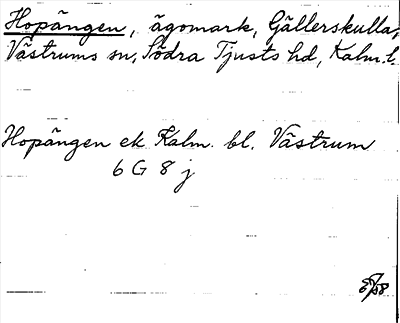 Hopängen, ägomark, Gällerskulla,
Västrums sn, Södra Tjusts hd, Kalm. l.
Hopängen ek Kalm. bl. Västrum
6 G 8 j